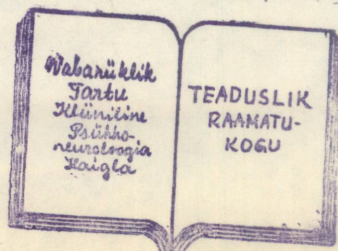 Wabariiklik
Tartu
Kliiniline
Psühho-
neuroloogia
Haigla
TEADUSLIK
RAAMATU-
KOGU